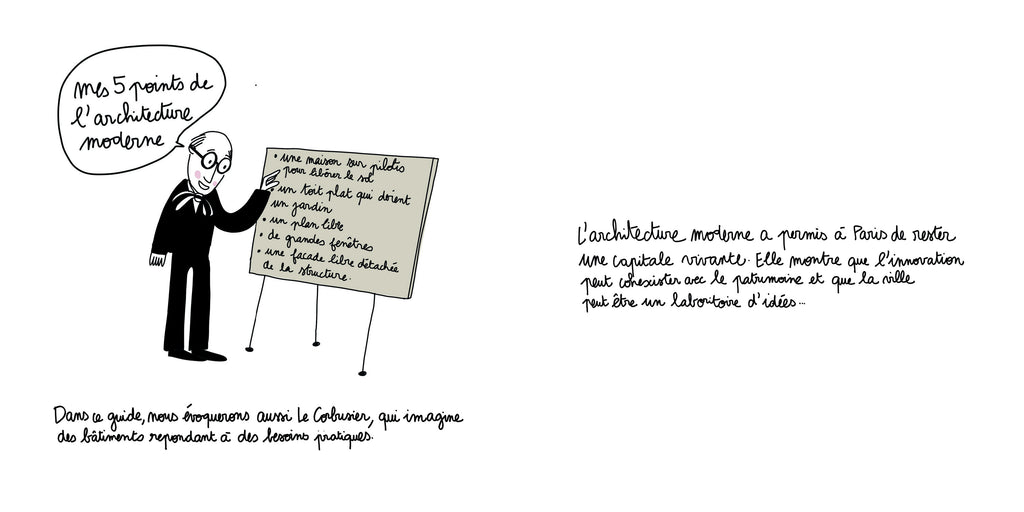 mes 5 points de
l'architecture
moderne
• une maison sur pilotis
pour libérer le sol
• un toit plat qui devient
un jardin
• un plan libre
• de grandes fenêtres
• une façade libre détachée
de la structure.
Dans ce guide, nous évoquerons aussi Le Corbusier, qui imagine
des bâtiments repondant à des besoins pratiques.
L'architecture moderne a permis à Paris de rester
une capitale vivante. Elle montre que l'innovation
peut cohexister avec le patrimoine et que la ville
peut être un laboritoire d'idées...